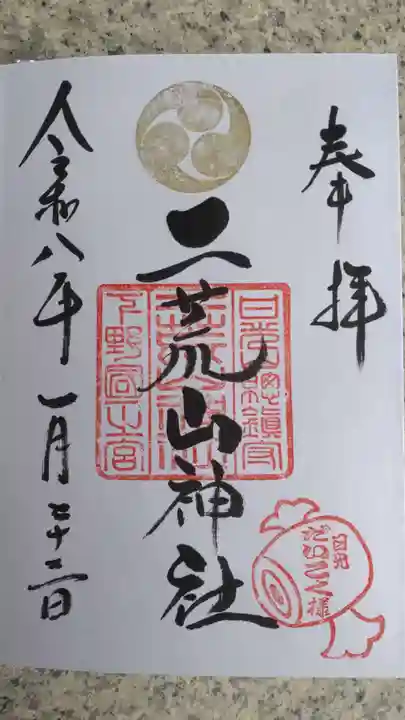 奉拝
二荒山神社
令和八年一月二十二日
日光總鎮守
下野國一之宮
日光
だいこく様